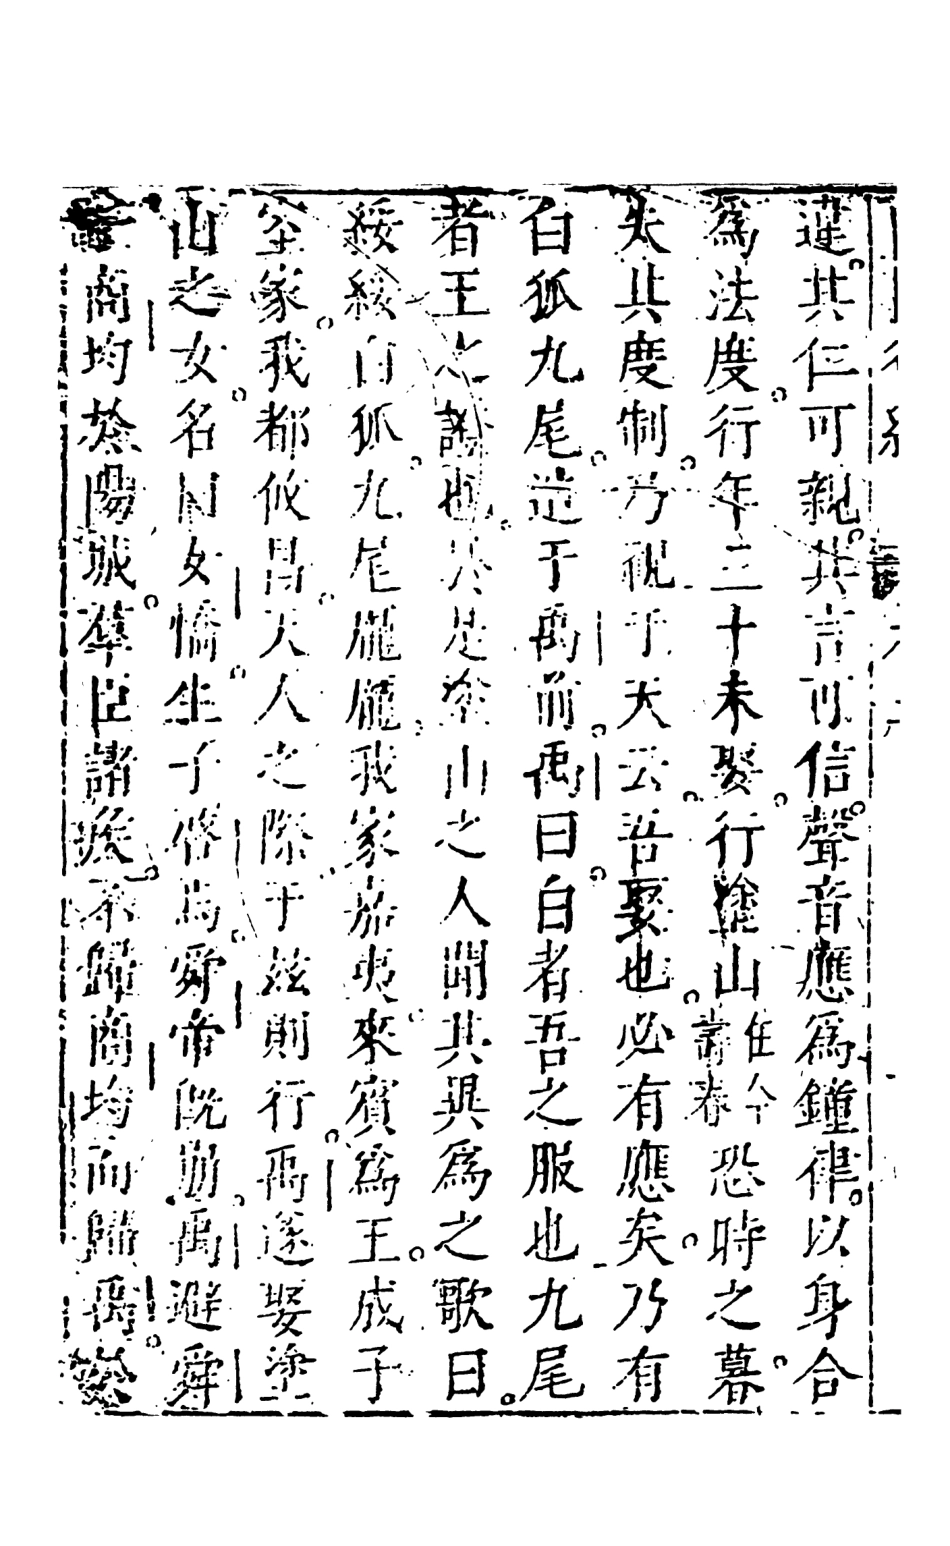 違其仁可親其言可信聲音應爲鐘律以身合
爲法度行年三十未娶行塗山在今壽春恐時之暮
失其度制乃祝于天云吾娶也必有應矣乃有
白狐九尾造于禹前禹曰白者吾之服也九尾
者王之證也于是塗山之人聞其異爲之歌曰
綏綏白狐九尾龐龐我家嘉夷來賓爲王成子
室家我都攸昌天人之際于茲則行禹遂娶塗
山之女名曰女憍生子啓焉舜帝既崩禹避舜
商均於陽城羣臣諸侯不歸商均而歸禹